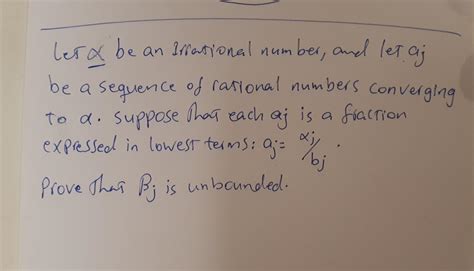 Let α be an Irrational number, and let aj
be a sequence of rational numbers converging
to α. suppose that each aj is a fraction
expressed in lowest terms: aj = αj/bj.
Prove that βj is unbounded.